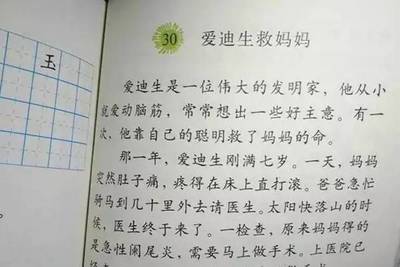 玉
30 爱迪生救妈妈
爱迪生是一位伟大的发明家,他从小
就爱动脑筋,常常想出一些好主意。有一
次,他靠自己的聪明救了妈妈的命。
那一年,爱迪生刚满七岁。一天,妈妈
突然肚子痛,疼得在床上直打滚。爸爸急忙
骑马到几十里外去请医生。太阳快落山的时
候,医生终于来了。一检查,原来妈妈得的
是急性阑尾炎,需要马上做手术。上医院已